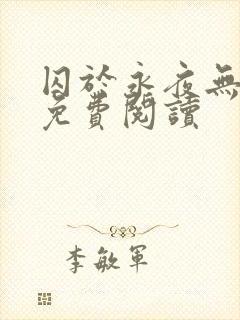 囚於永夜無
免費閱讀
李敏軍